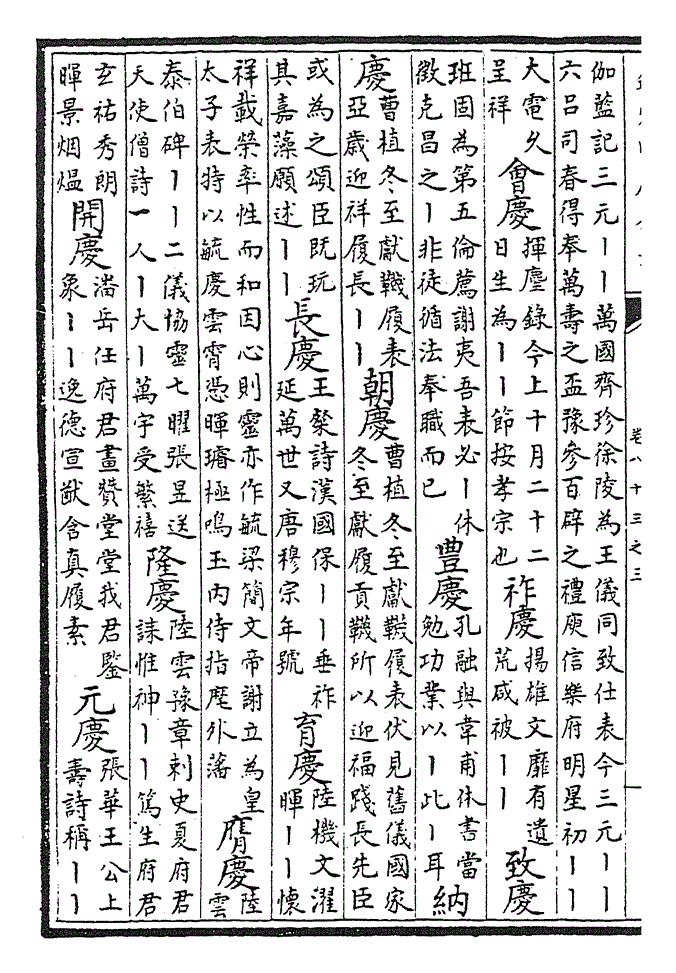 伽藍記三元丨丨萬國齊珍徐陵為王儀同致仕表今三元丨丨
六呂司春得奉萬壽之盃豫參百辟之禮庾信樂府明星初丨丨
大電夊
呈祥
會慶
揮麈錄今上十月二十二
日生為丨丨節按孝宗也
祚慶
揚雄文靡有遺
荒咸被丨丨
致慶
班固為第五倫薦謝夷吾表必丨休
徵克昌之丨非徒循法奉職而已
豐慶
孔融與韋甫休書當
勉功業以丨此丨耳
納
慶
曹植冬至獻韈履表
亞歲迎祥履長丨丨
朝慶
曹植冬至獻韈履表伏見舊儀國家
冬至獻履貢韈所以迎福踐長先臣
或為之頌臣旣玩
其嘉藻願述丨丨
長慶
王粲詩漢國保丨丨垂祚
延萬世又唐穆宗年號
育慶
陸機文濯
暉丨丨懷
祥載榮率性而和因心則靈亦作毓梁簡文帝謝立為皇
太子表特以毓慶雲霄憑暉璿極鳴玉內侍指麾外藩
膺慶
陸
雲
泰伯碑丨丨二儀協靈七曜張昱送
天使僧詩一人丨大丨萬宇受繁禧
隆慶
陸雲豫章刺史夏府君
誄惟神丨丨篤生府君
玄祐秀朗
暉景烟熅
開慶
潘岳任府君畫贊堂堂我君鑒
象丨丨逸德宣猷含真履素
元慶
張華王公上
壽詩稱丨丨
卷八十三之三